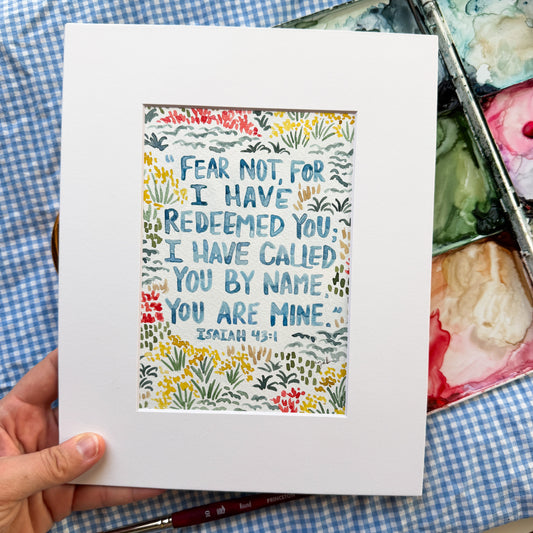 "FEAR NOT, FOR
I HAVE
REDEEMED YOU;
I HAVE CALLED
YOU BY NAME
YOU ARE MINE."
ISAIAH 43:1
Round PRINCETON